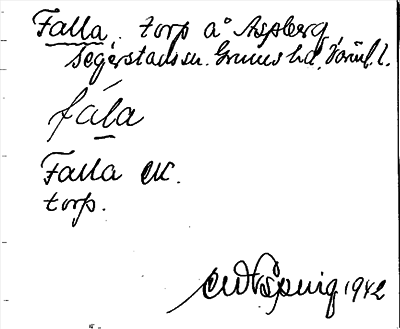 Falla, torp å Aspberg,
Segerstads sn. Grums hd. Värml. l.
fála
Falla EK.
torp.
1942